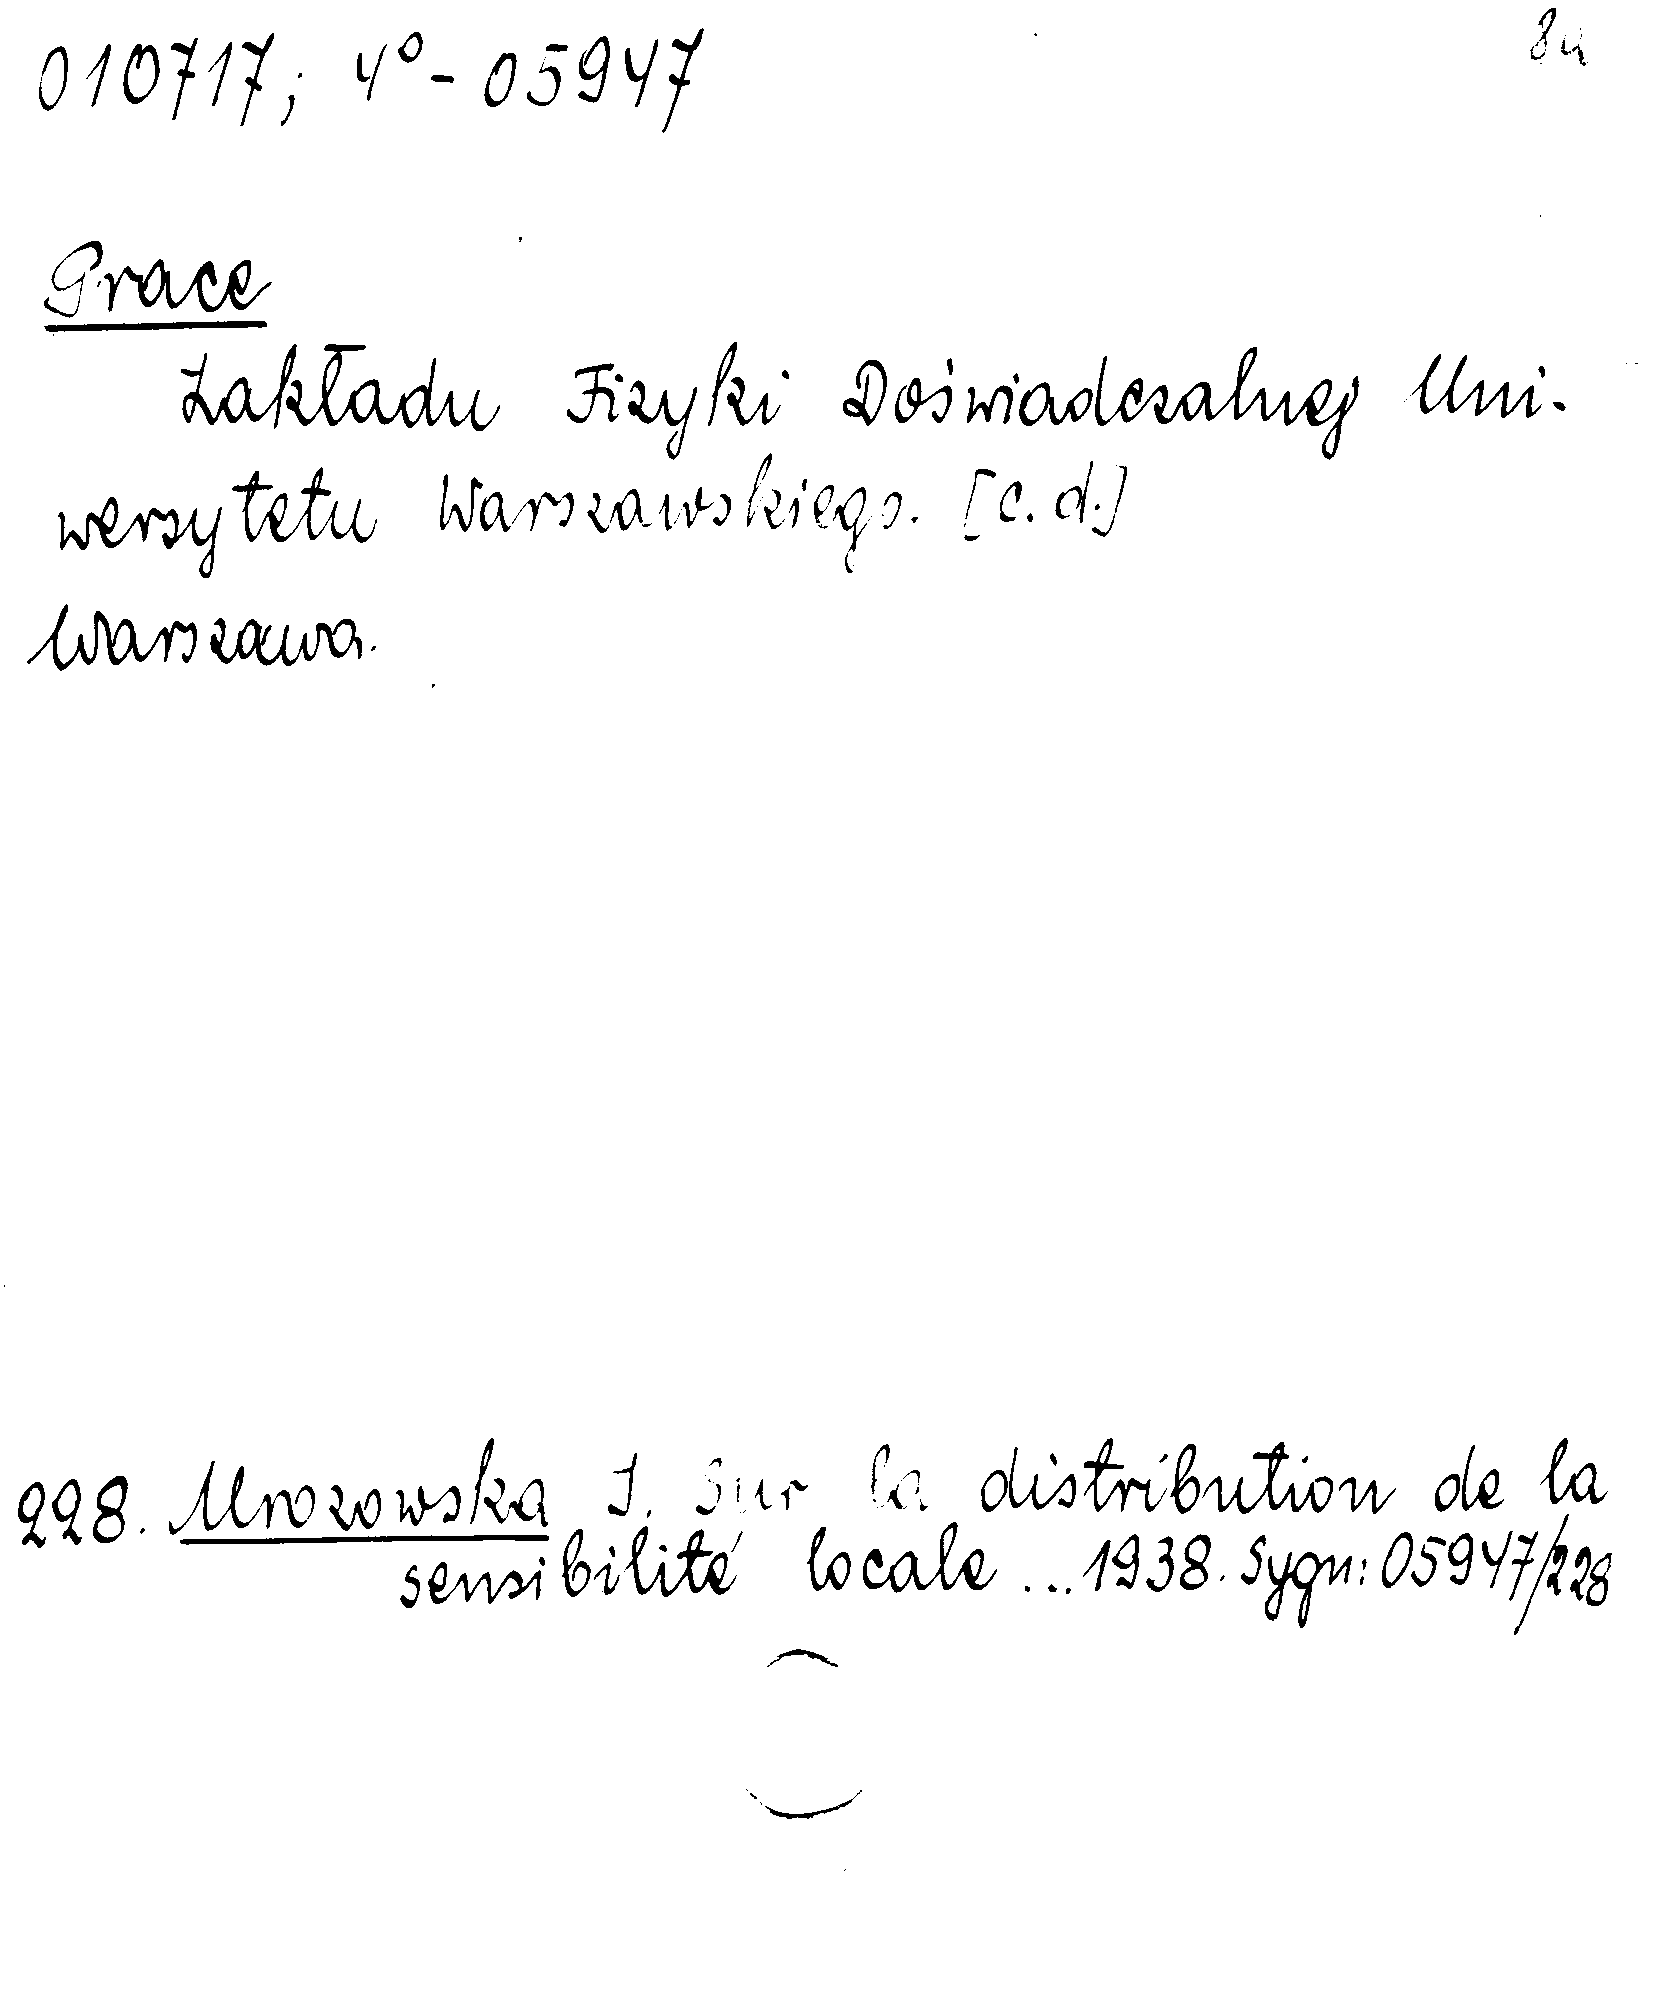 010717; 4°-05947
Prace
Zakładu Fizyki Doświadczalnej Uni-
wersytetu Warszawskiego. [c.d.]
Warszawa.
228. Mrozowska I. Sur la distribution de la
sensibilité locale ... 1938. Sygn: 05947/228